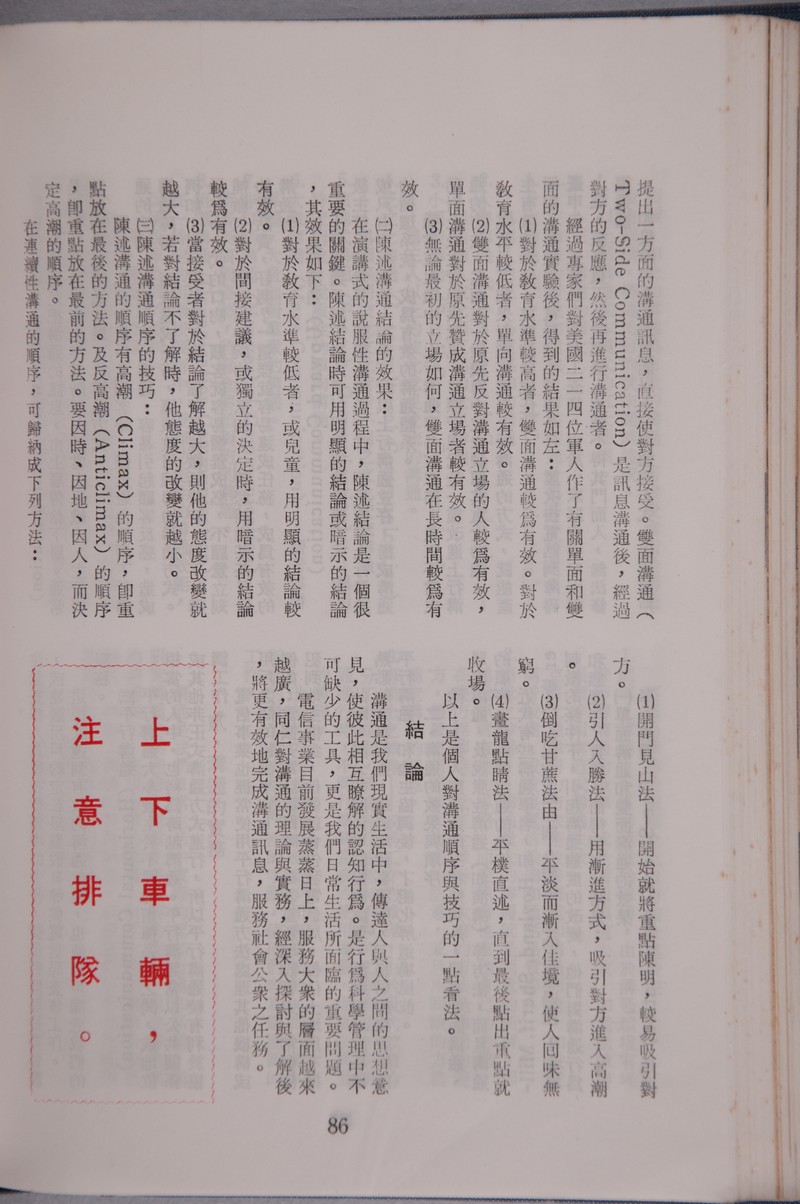 提出一方面的溝通訊息，直接使對方接受。雙面溝通（
Two-Side Communication）是訊息溝通後，經過
對方的反應，然後再進行溝通者。
經過專家們對美國二一四位軍人作了有關單面和雙
面的溝通實驗後，得到的結果如左：
⑴對於教育水準較高者，雙面溝通較爲有效。對於
教育水平較低者，單向溝通較有效。
⑵雙面溝通對於原先反對溝通立場的人較爲有效，
單面溝通對於原先贊成溝通立場者較有效。
⑶無論最初的立場如何，雙面溝通在長時間較爲有
效。
㈡陳述溝通結論的效果：
在演講式的說服性溝通過程中，陳述結論是一個很
重要的關鍵。陳述結論時可用明顯的結論或暗示的結論
，其效果如下：
⑴對於教育水準較低者，或兒童，用明顯的結論較
有效。
⑵對於間接建議，或獨立的決定時，用暗示的結論
較爲有效。
⑶當接受者對於結論了解越大，則他的態度改變就
越大，若對結論不了解時，他態度的改變就越小。
㈢陳述溝通順序的技巧：
陳述溝通的順序有高潮（Climax）的順序，即重
點放在最後的方法。及反高潮（Anticlimax）的順序
，即重點放在最前的方法。要因時、因地、因人，而決
定高潮的順序。
在連續性溝通的順序，可歸納成下列方法：
⑴開門見山法——開始就將重點陳明，較易吸引對
方。
⑵引人入勝法——用漸進方式，吸引對方進入高潮
。
⑶倒吃甘蔗法由——平淡而漸入佳境，使人回味無
窮。
⑷畫龍點睛法——平樸直述，直到最後點出重點就
收場。
以上是個人對溝通順序與技巧的一點看法。
結論
溝通是我們現實生活中，傳達人與人之間的思想意
見，使彼此相互瞭解的認知行爲。是行爲科學管理中不
可缺少的工具，更是我們日常生活所面臨的重要問題。
電信事業目前發展蒸蒸日上，服務大衆的層面越來
越廣，同仁對溝通的理論與實務，經深入探討與了解後
，將更有效地完成溝通訊息，服務社會公衆之任務。
上下車輛，
注意排隊。
86